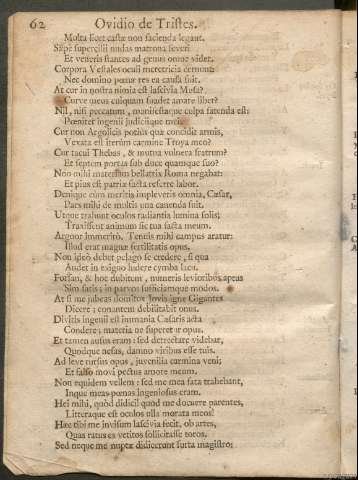 62 Ovidio de Tristes.
Multa licet castæ non facienda legant.
Sæpè supercilii nudas matrona severi
Et veneris stantes ad genus omne videt.
Corpora Vestales oculi meretricia cernunt:
Nec domino pœnæ res ea causa fuit.
At cur in nostra nimia est lascivia Musa?
Curve meus cuiquam suadet amare liber?
Nil, nisi peccatum, manifestaque culpa fatenda est:
Pœnitet ingenii judiciique mei.
Cur non Argolicis potiùs quæ concidit armis,
Vexata est iterùm carmine Troya meo?
Cur tacui Thebas, & mutua vulnera fratrum?
Et septem portas sub duce quamque suo?
Non mihi materiam bellatrix Roma negabat:
Et pius est patriæ facta referre labor.
Denique cùm meritis impleveris omnia, Cæsar,
Pars mihi de multis una canenda fuit.
Utque trahunt oculos radiantia lumina solis;
Traxissent animum sic tua facta meum.
Arguor immeritò. Tenuis mihi campus aratur:
Illud erat magnæ fertilitatis opus.
Non ideò debet pelago se credere, si qua
Audet in exiguo ludere cymba lacu.
Forsan, & hoc dubitem, numeris levioribus aptus
Sim satis; in parvos sufficiamque modos.
At si me jubeas domitos Jovis igne Gigantes
Dicere; conantem debilitabit onus.
Divitis ingenii est immania Cæsaris acta
Condere; materia ne superetur opus.
Et tamen ausus eram: sed detrectare videbar,
Quodque nefas, damno viribus esse tuis.
Ad leve rursus opus, juvenilia carmina veni;
Et falso movi pectus amore meum.
Non equidem vellem: sed me mea fata trahebant,
Inque meas pœnas ingeniosus eram.
Hei mihi, quòd didici! quod me docuere parentes,
Litteraque est oculos ulla morata meos!
Hæc tibi me invisum lascivia fecit, ob artes,
Quas ratus es vetitos sollicitasse toros.
Sed neque me nuptæ didicerunt furta magistro: